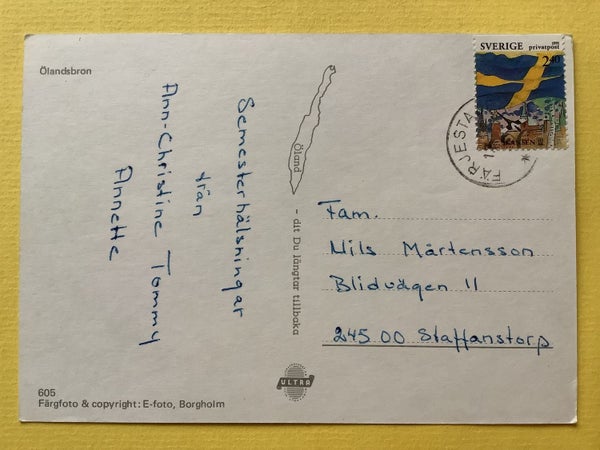 Ölandsbron
Semesterhälsningar
från
Ann-Christine Tommy
Annette
Öland
- dit Du längtar tillbaka
SVERIGE
privatpost
2.40
SKANSEN
FÄRJESTA
Fam.
Nils Mårtensson
Blidvägen 11
245 00 Staffanstorp
ULTRA
605
Färgfoto & copyright: E-foto, Borgholm